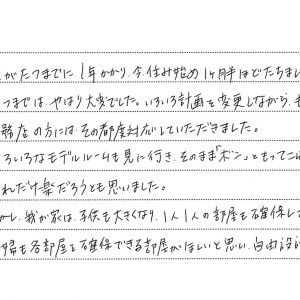 がたつまでに1年かかり、今、住み始め1ヶ月半ほどたちまし
つまでは、やはり大変でした。いろいろ計画を変更しながら、
務店の方には、その都度対応していただきました。
ろいろなモデルルームも見に行き、そのまま「ポン」ともってこ
れだけ楽だろうとも思いました。
かし、我が家は、子供も大きくなり、1人1人の部屋も確保し
婦も各部屋を確保できる部屋がほしいと思い、自由設